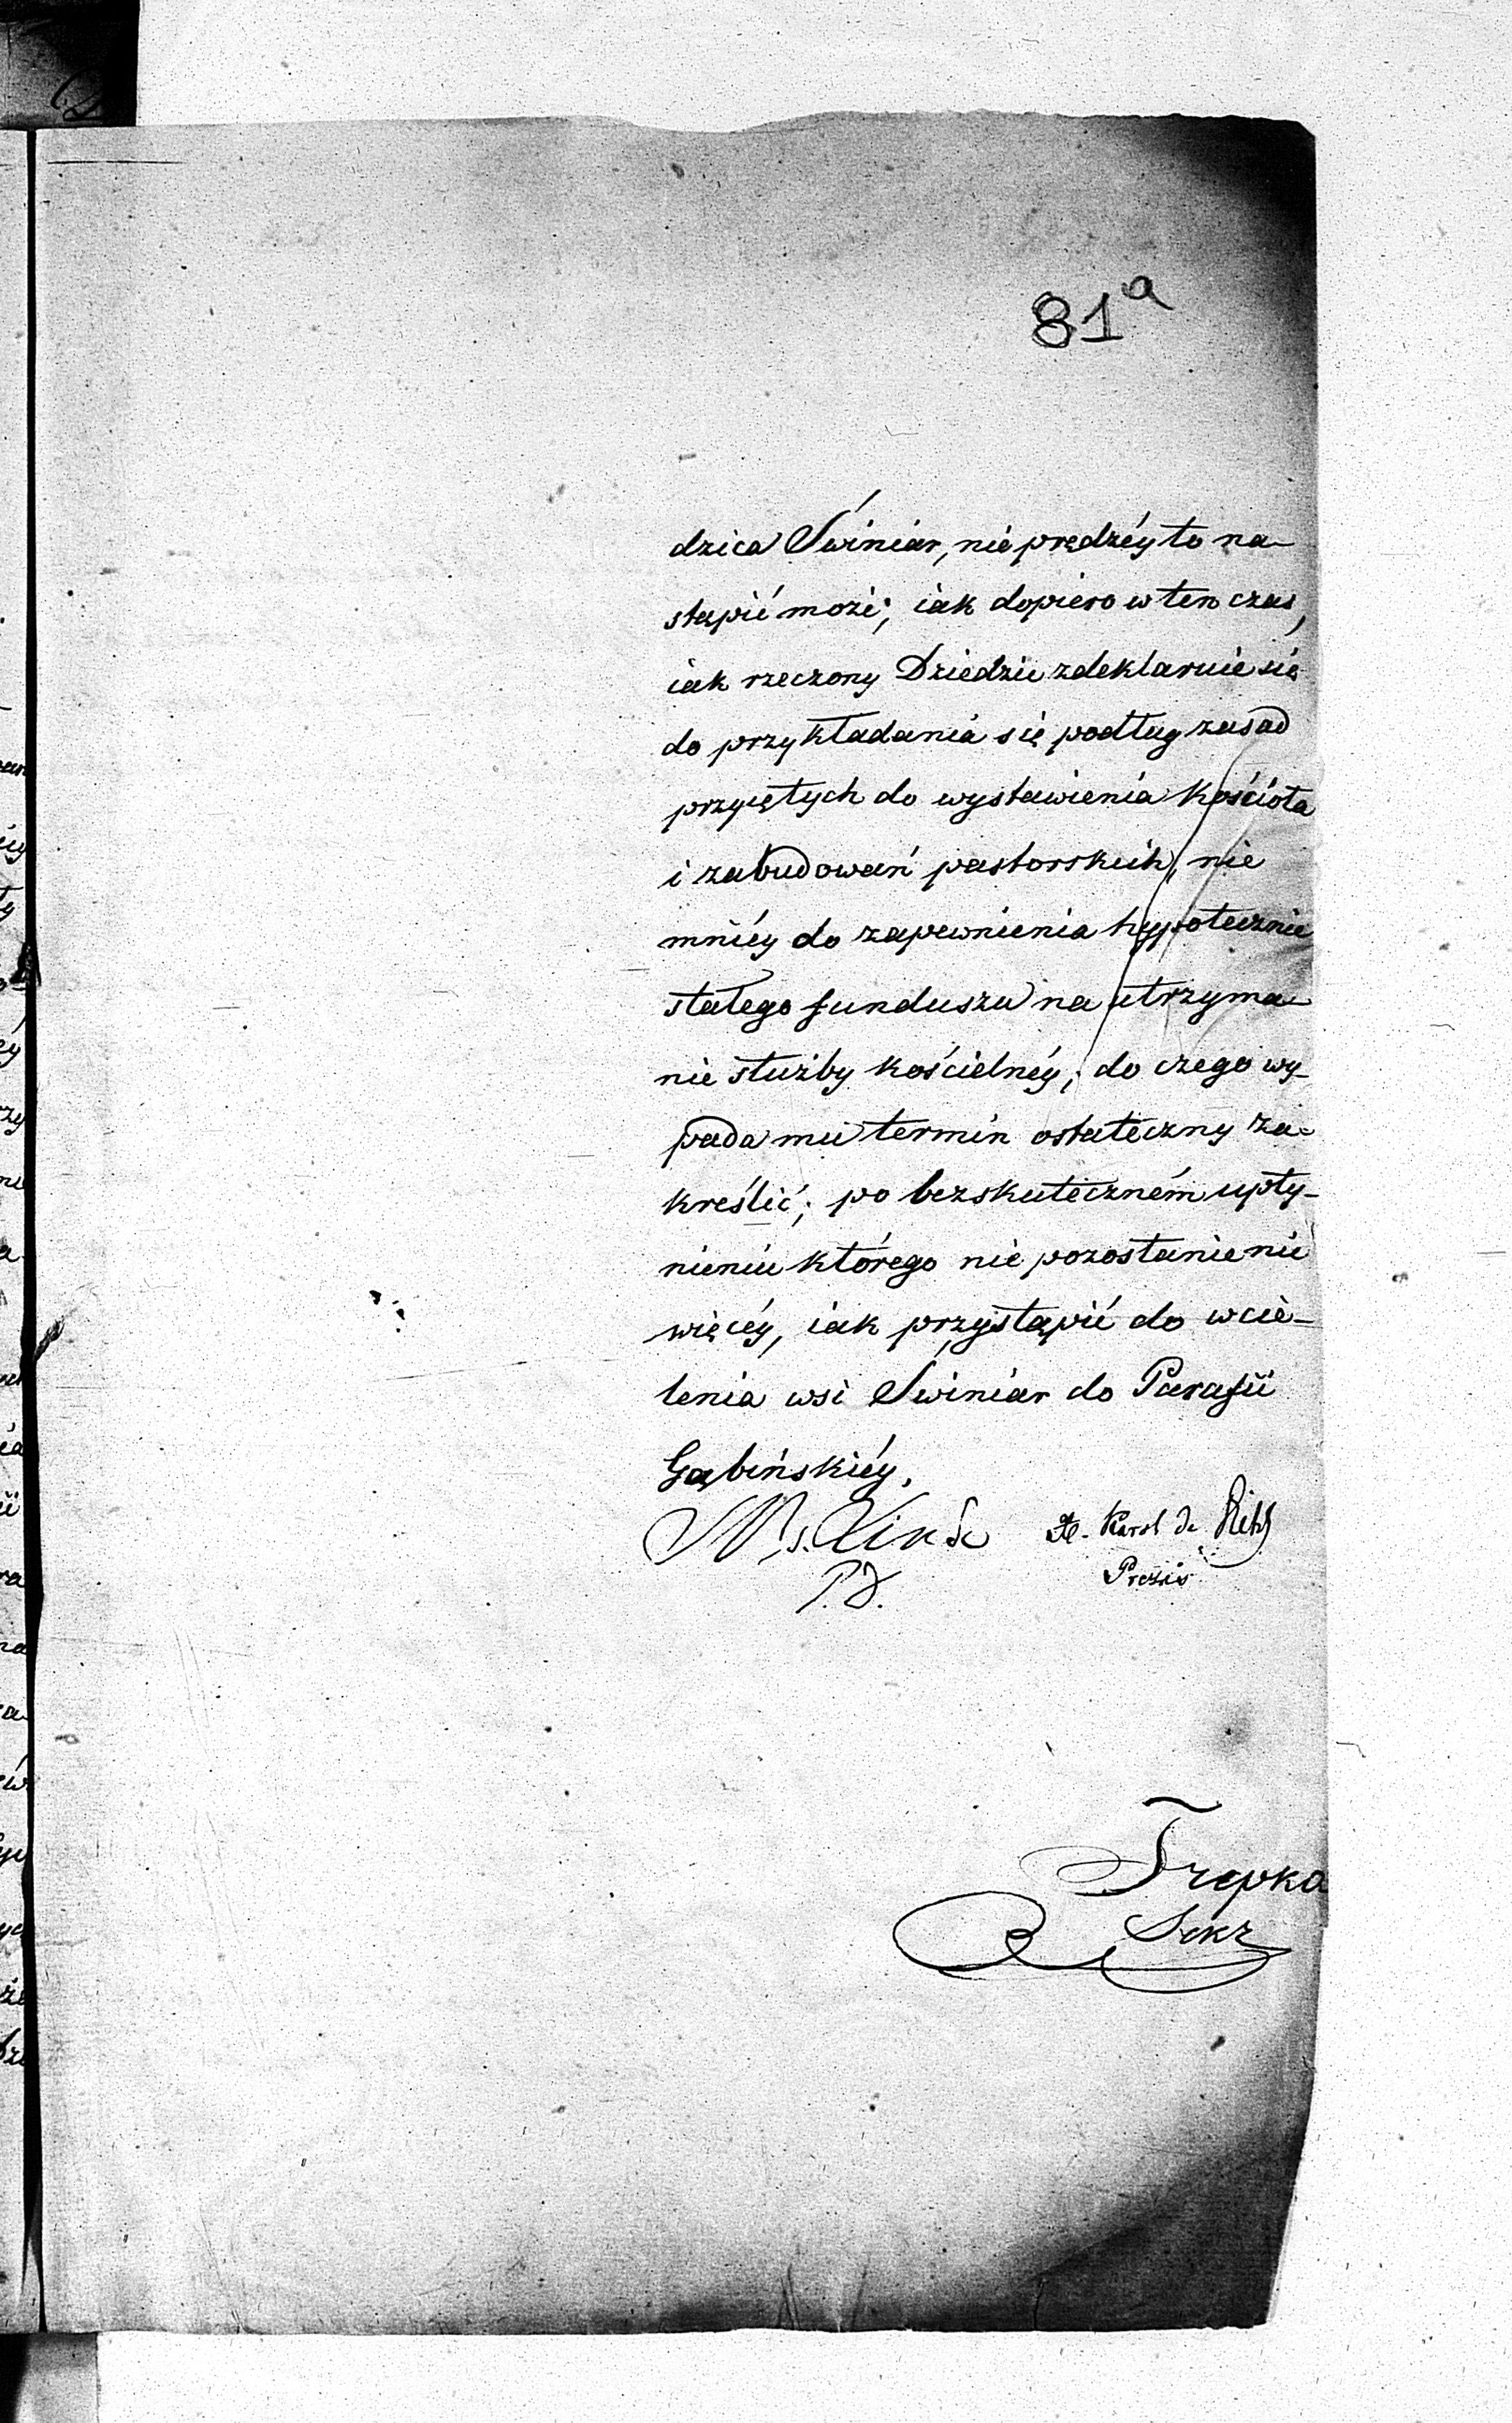 81a
dzica Świniar, nie prędzéy to na-
stąpić może; iak dopiero w ten czas,
iak rzeczony Dziedzic zdeklaruie się
do przykładania się podług zasad
przyiętych do wystawienia Kościoła
i zabudowań pastorskich, nie
mniéy do zapewnienia hypotecznie
stałego funduszu na utrzyma-
nie służby kościelnéy; do czego wy-
pada mu termin ostateczny za-
kreślić; po bezskuteczném upły-
nieniu którego nie pozostanie nic
więcéy, iak przystąpić do wcie-
lenia wsi Świniar do Parafii
Gąbińskiéy.
Karol de
Prezes
P.d.
Trepka
Sekr